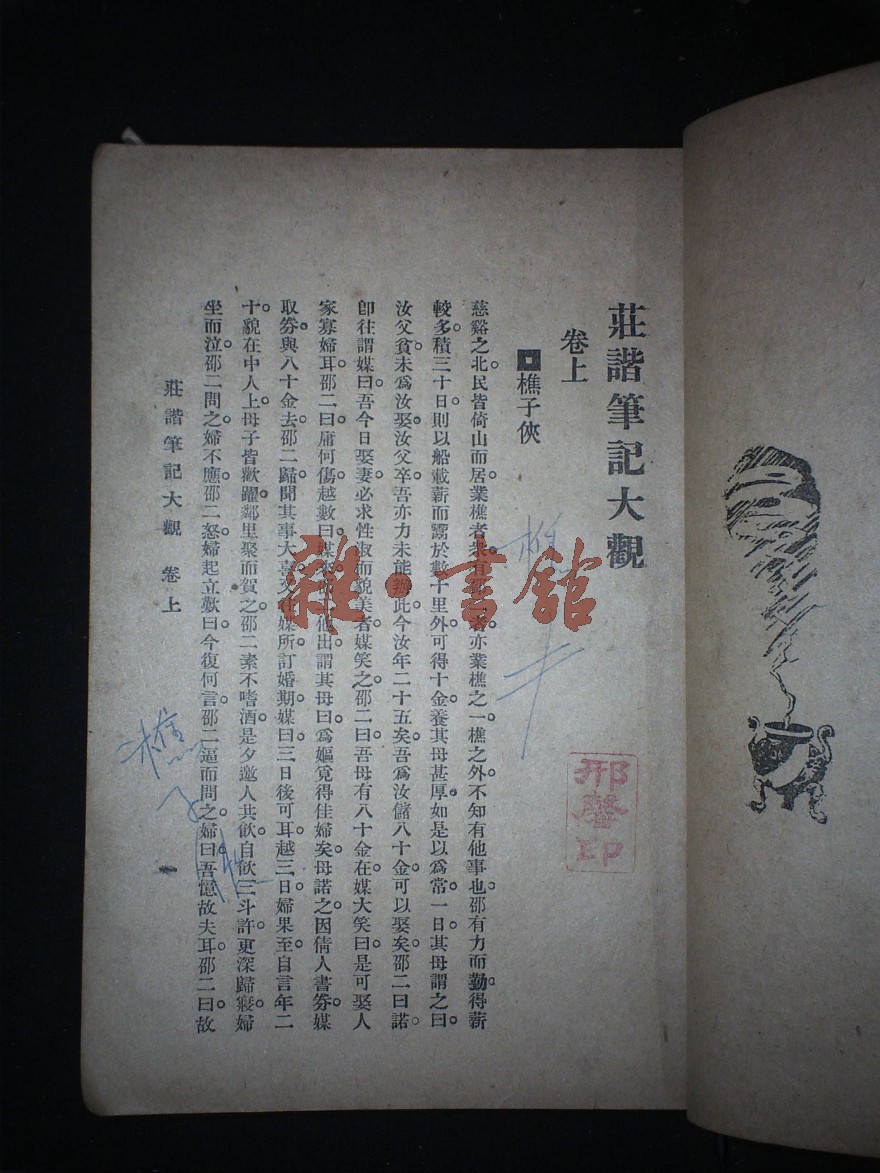 莊諧筆記大觀
卷上
樵子俠
慈谿之北民皆倚山而居業樵者衆有邵二者亦業樵之一樵之外不知有他事也邵有力而勤。得薪
較多。積三十日。則以船載薪而鬻於數十里外。可得十金。養其母甚厚。如是以爲常。一日。其母謂之曰。
汝父貧。未爲汝娶。汝父卒。吾亦力未能辦此。今汝年二十五矣。吾爲汝儲八十金。可以娶矣。邵二曰。諾。
卽往謂媒曰。吾今日娶妻。必求性淑而貌美者。媒笑之。邵二曰。吾母有八十金在。媒大笑曰。是可娶人
家寡婦耳。邵二曰。庸何傷。越數日。媒來他出。謂其母曰。爲嫗覓得佳婦矣。母諾之。因倩人書券。媒
取券與八十金去。邵二歸。聞其事大喜。媒所訂婚期。媒曰。三日後可耳。越三日。婦果至。自言年二
十。貌在中人上。母子皆歡躍。鄰里聚而賀之。邵二素不嗜酒。是夕邀人共飮。自飮三斗許。更深歸寢。婦
坐而泣。邵二問之。婦不應。邵二怒。婦起立歎曰。今復何言。邵二逼而問之。婦曰。吾憶故夫耳。邵二曰。故
莊諧筆記大觀 卷上
一
雜·書館
邢馨印
樵
樵
子